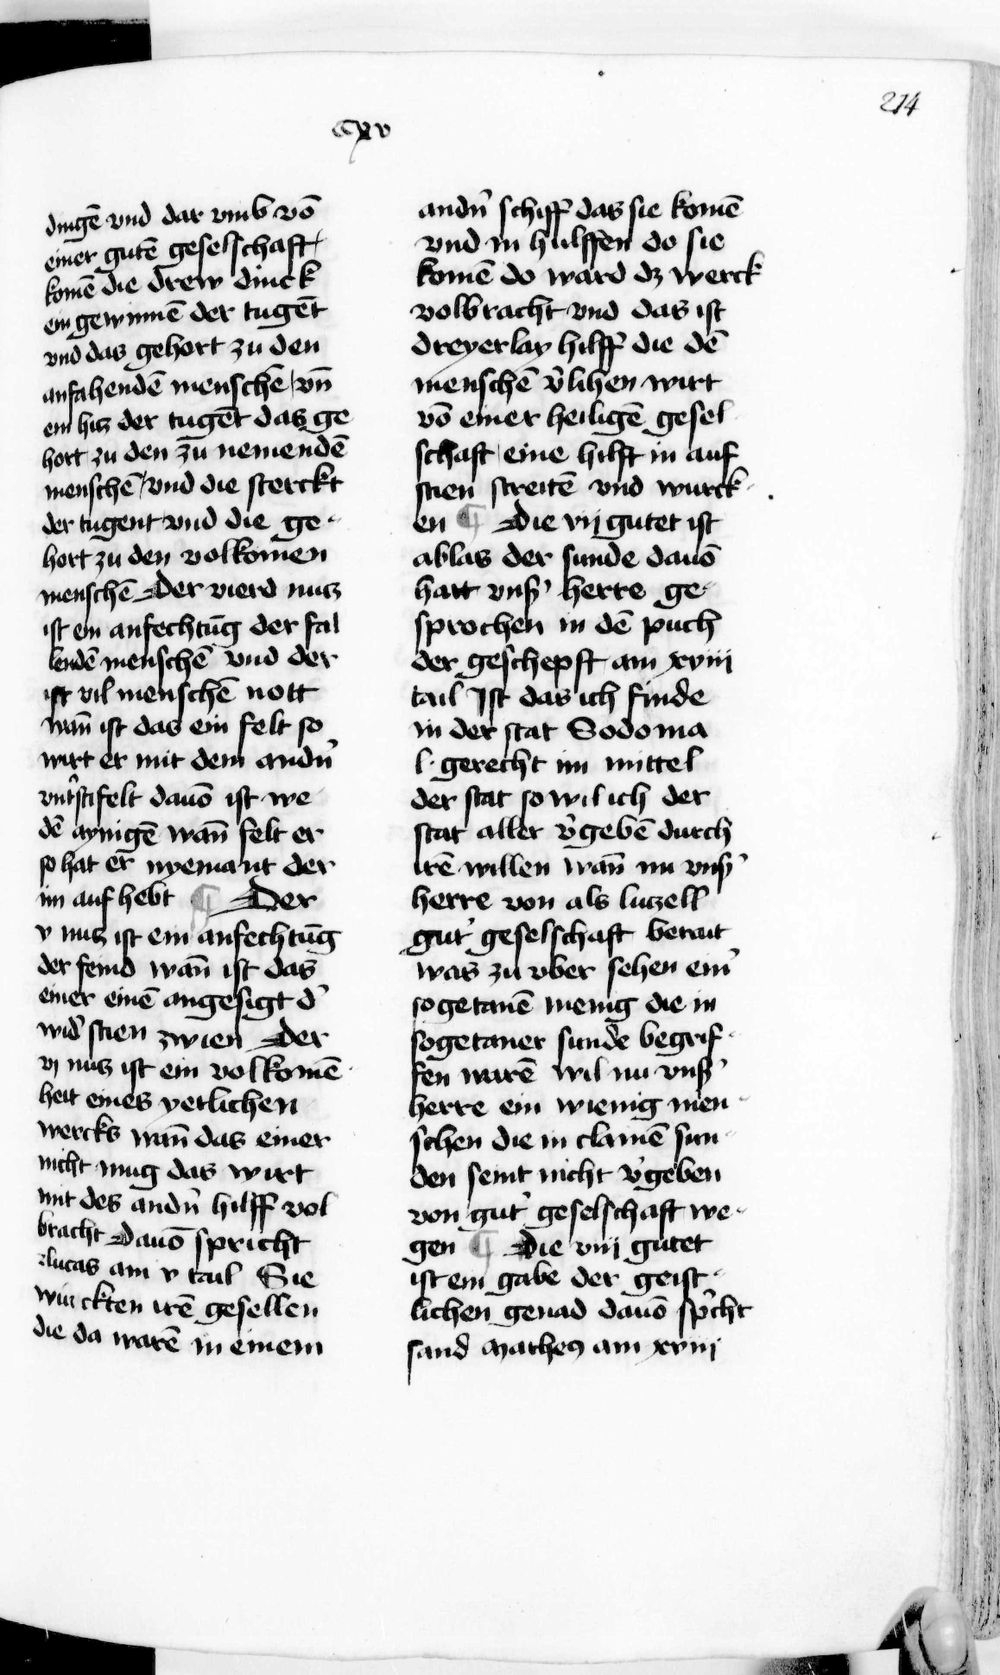 214
cxv
dingē vnd dar vmb võ
einer gutē geselschaft
komē die drew dinck
ein gewinnē der tugēt
vnd das gehort zu den
anfahendē menschē / vn̄
ein hitz der tugēt das ge
hort zu den zu nemendē
menschē / vnd die sterckt
der tugent vnd die ge-
hort zu den volkomen
menschē Der vierd nutz
ist ein anfechtūg der fal
lendē menschē vnd der
ist vil menschē nott
wan̄ ist das ein felt so
wirt er mit dem andn̄
vnt̓stifelt dauō ist we
dē aynigē wan̄ felt er
so hat er nyemant der
im auf hebt ¶ Der
v nutz ist ein anfechtūg
der feind wan̄ ist das
einer einē angesigt d̓
wid̓ stien zwien Der
vj nutz ist ein volkomē
heit eines yetlichen
wercks wan̄ das einer
nicht mug das wirt
mit des andn̄ hilff vol
bracht Dauō spricht
lucas am v tail Sie
winckten irē gesellen
die da warē in einem
andn̄ schiff das sie komē
vnd in hulffen do sie
komē do ward dz werck
volbracht vnd das ist
dreyerlay hilff die dē
menschē v̓lihen wirt
võ einer heiligē gesel
schaft / eine hilft in auf
stien streitē vnd wurck-
en ¶ Die vij gutet ist
ablas der sunde dauō
hatt vns̓ herre ge-
sprochen in dē puch
der geschepft am xviij
tail Ist das ich finde
in der stat Sodoma
l· gerecht im mittel
der stat so wil ich der
stat aller v̓gebē durch
irē willen wan̄ nu vns̓
herre von als lutzell
gut̓ geselschaft berait
was zu vber sehen ein̓
sogetanē menig die in
sogetaner sunde begrif-
fen warē wil nu vns̓
herre ein wienig men-
schen die in clainē sun-
den seint nicht v̓geben
von gut̓ geselschaft we-
gen ¶ Die viij gutet
ist ein gabe der geist-
lichen genad dauō sp̓cht
sand Matheus am xviij